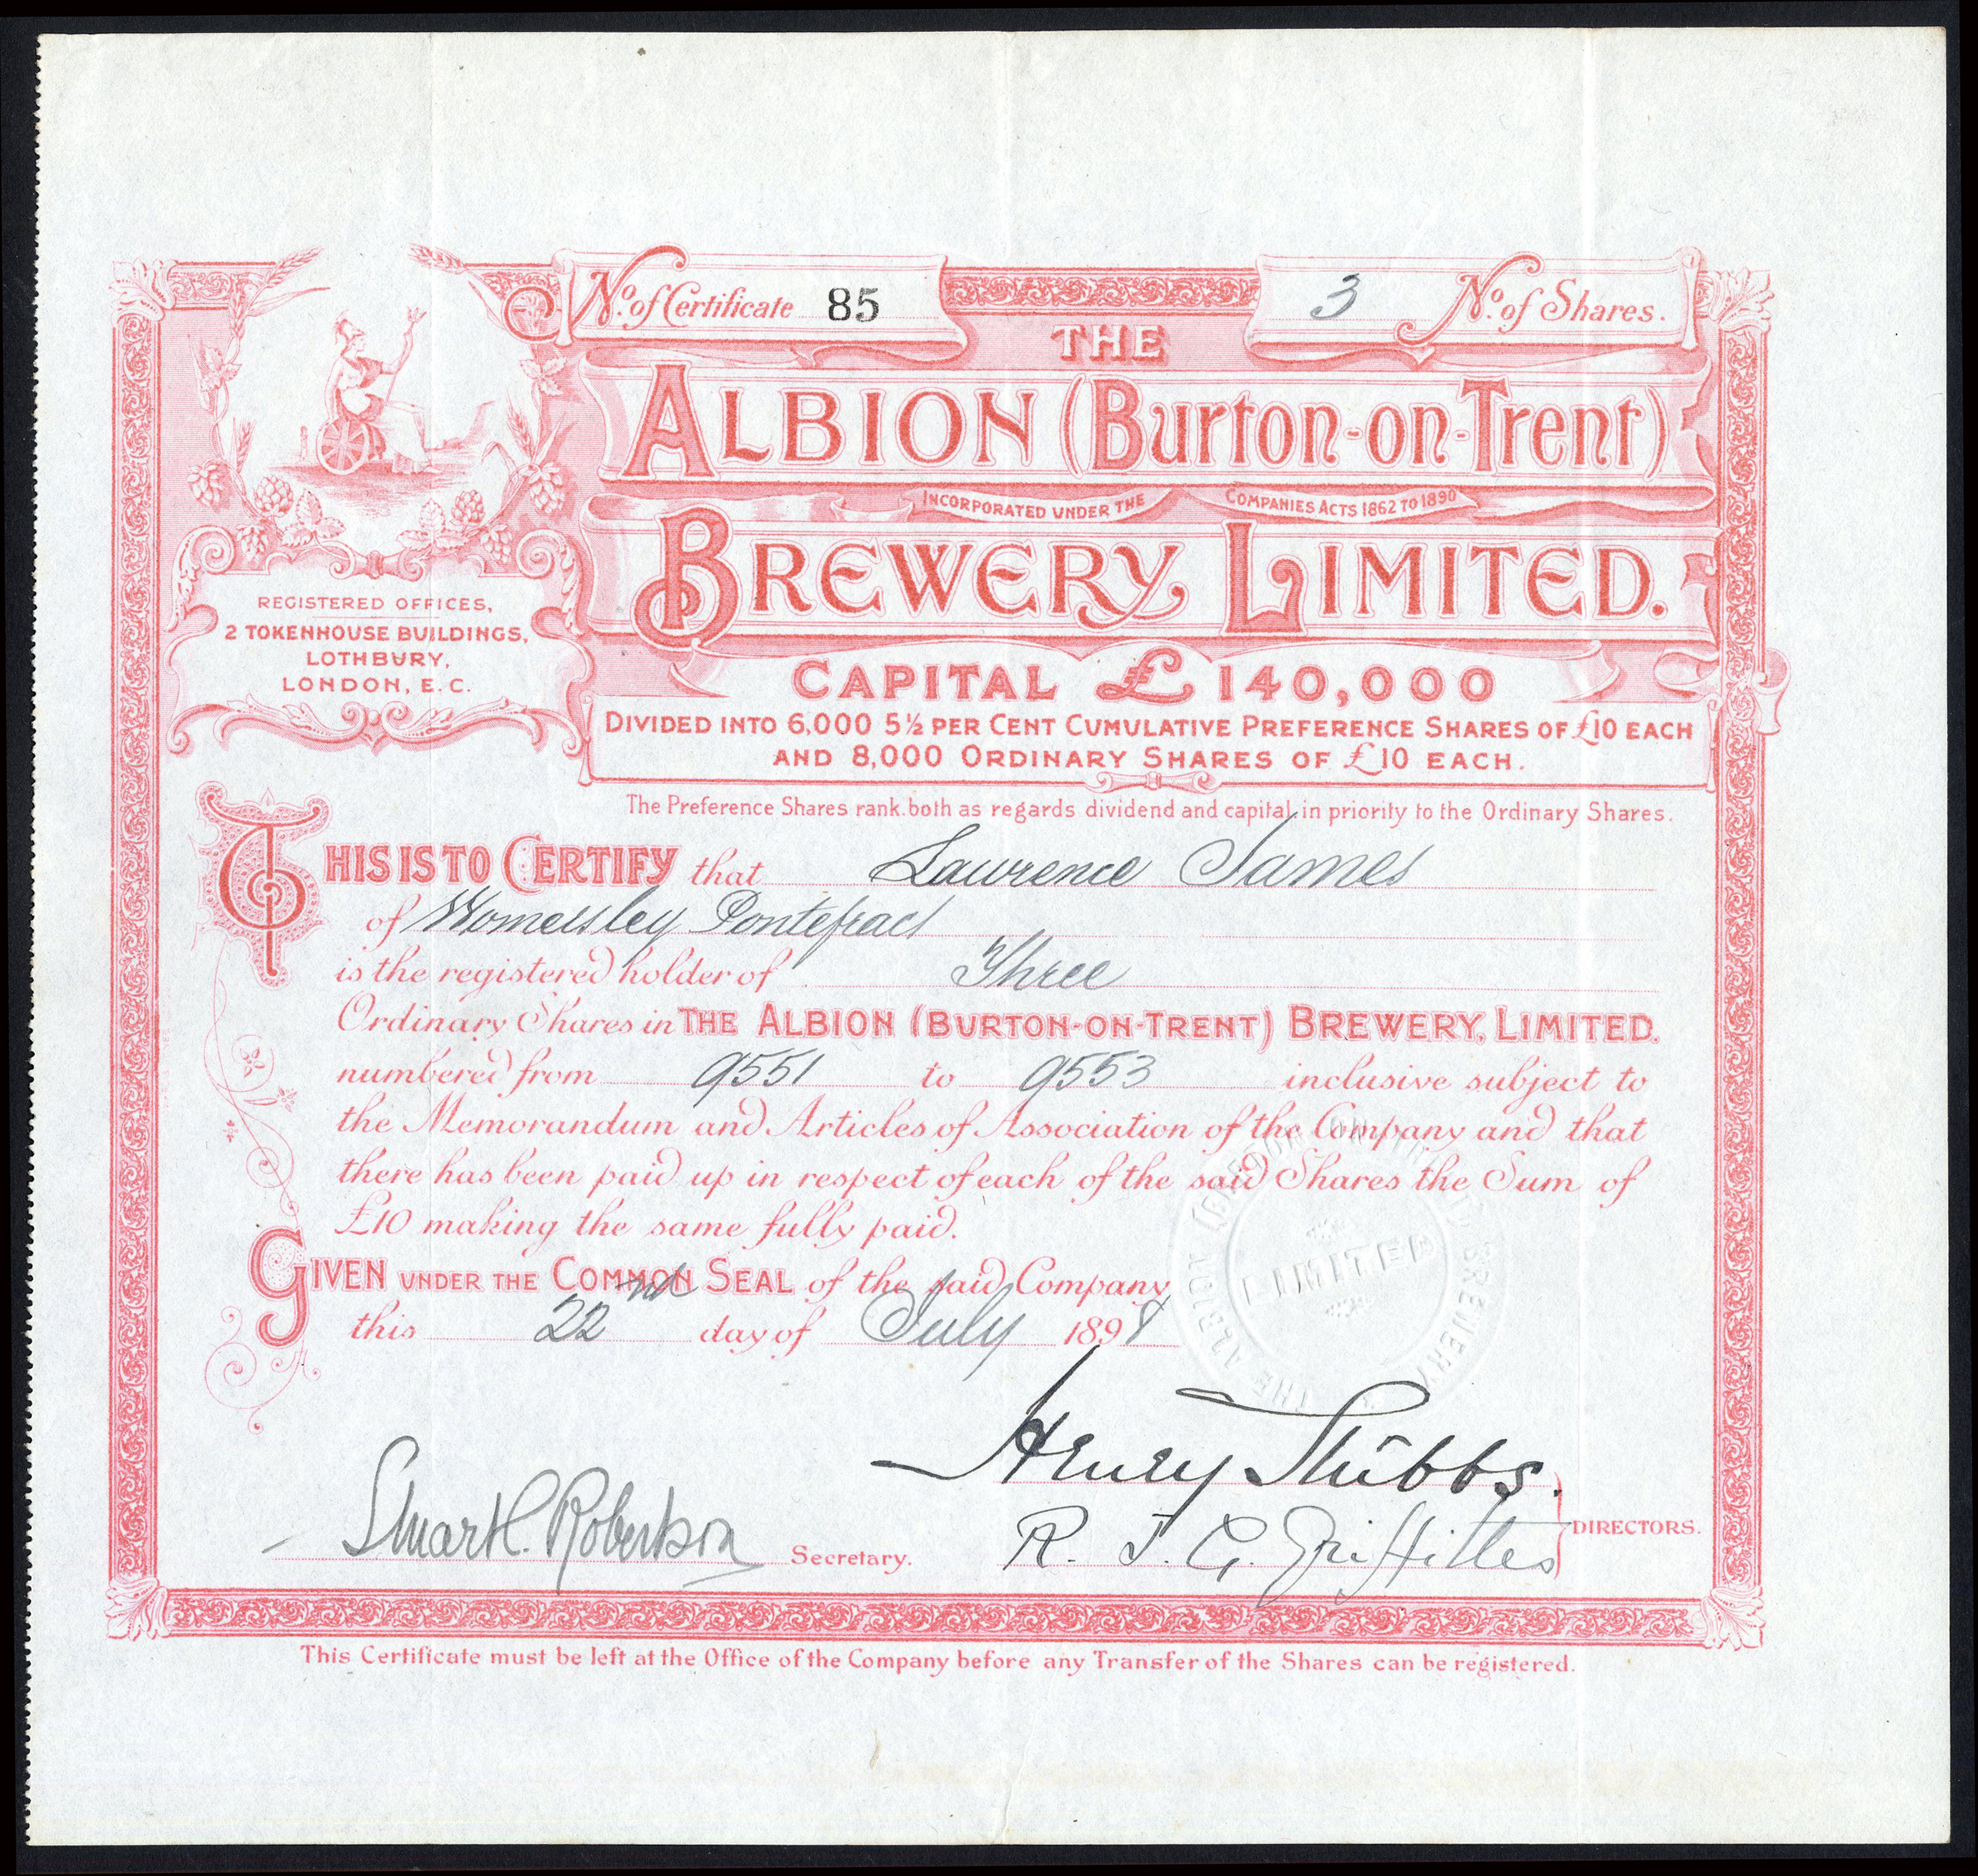 No. of Certificate 85
3 No. of Shares.
THE
ALBION (Burton-on-Trent)
INCORPORATED UNDER THE COMPANIES ACTS 1862 TO 1890
BREWERY LIMITED.
REGISTERED OFFICES,
2 TOKENHOUSE BUILDINGS,
LOTHBURY,
LONDON, E.C.
CAPITAL £140,000
DIVIDED INTO 6,000 5½ PER CENT CUMULATIVE PREFERENCE SHARES OF £10 EACH
AND 8,000 ORDINARY SHARES OF £10 EACH.
The Preference Shares rank both as regards dividend and capital in priority to the Ordinary Shares.
THIS IS TO CERTIFY that Lawrence James
of Womersley Pontefract
is the registered holder of Three
Ordinary Shares in THE ALBION (BURTON-ON-TRENT) BREWERY, LIMITED.
numbered from 9551 to 9553 inclusive subject to
the Memorandum and Articles of Association of the Company and that
there has been paid up in respect of each of the said Shares the Sum of
£10 making the same fully paid.
GIVEN UNDER THE COMMON SEAL of the said Company
this 22nd day of July 1898
THE ALBION (BURTON-ON-TRENT) BREWERY
LIMITED
Henry Stubbs.
Stuart C. Robertson Secretary.
R. J. G. Griffithes DIRECTORS.
This Certificate must be left at the Office of the Company before any Transfer of the Shares can be registered.